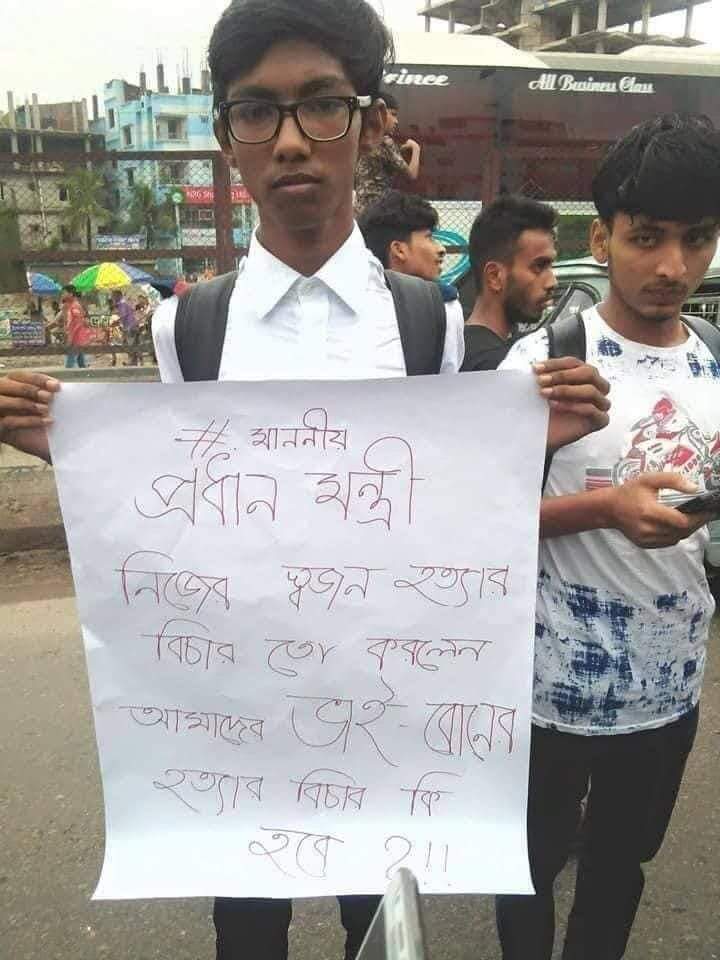 rince
All Business Class
# মাননীয়
প্রধান মন্ত্রী
নিজের স্বজন হত্যার
বিচার তো করলেন
আমাদের ভাই-বোনের
হত্যার বিচার কি
হবে ?!!